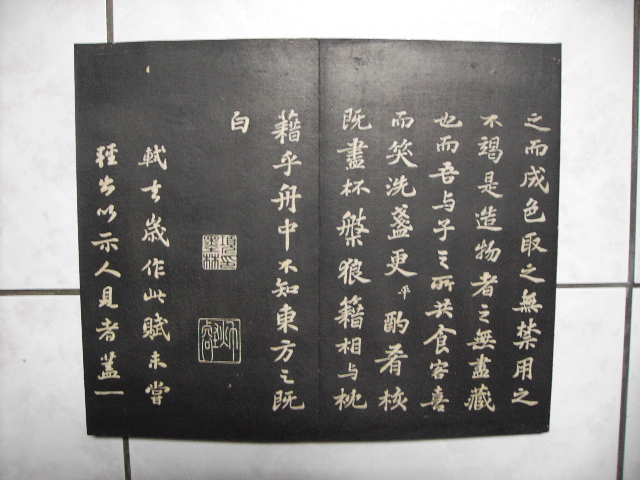 之而成色取之無禁用之
不竭是造物者之無盡藏
也而吾与子之所共食客喜
而笑洗盞更平酌肴核
既盡杯槃狼籍相与枕
藉乎舟中不知東方之既
白
軾去歲作此賦未嘗
輕出以示人見者盖一